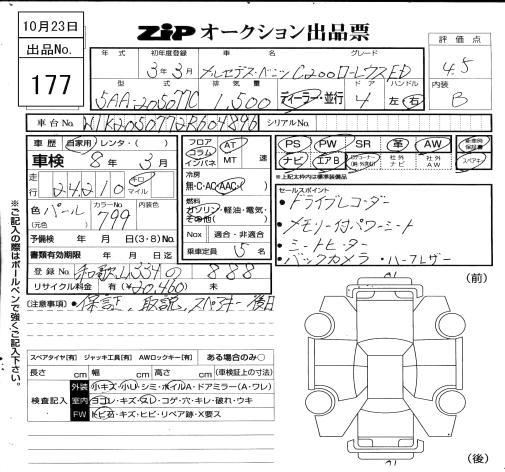 10月23日
出品No.
177
ZIP オークション出品票
年式 初年度登録 車名 グレード
3年3月 メルセデス・ベンツ C200ローレウスED
評価点
4.5
型式 排気量 ドア ハンドル
5AA-205077C 1,500 ディーラー・並行 4 左・右
内装
B
車台No. W1K2050772R604896 シリアルNo.
車歴 自家用・レンタ・( )
車検 8年 3月
走行 24210 キロ マイル
フロア コラム インパネ AT MT 速
冷房 無・C・AC・AAC・( )
燃料 ガソリン・軽油・電気・その他( )
色(元色) パール カラーNo. 799 内装色
Nox 適合・非適合
予備検 年 月 日(3・8)No.
書類有効期限 年 月 日迄
乗車定員 5名
登録No. 和歌山334の 888
リサイクル料金 有(¥20,460) 無
PS PW SR 革 AW
ナビ エアB 社外ナビ 社外AW スペアキー
※上記太枠内は標準装備品
セールスポイント
・ドライブレコーダー
・メモリー付パワーシート
・シートヒーター
・バックカメラ ・ハーフレザー
[注意事項] ・保証、取説、スペアキー後日
スペアタイヤ[有] ジャッキ工具[有] AWロックキー[有] ある場合のみ○
長さ cm 幅 cm 高さ cm (車検証上の寸法)
検査記入
外装 小キズ・小U・シミ・ホイルA・ドアミラー(A・ワレ)
室内 ヨゴレ・キズ・スレ・コゲ・穴・キレ・破れ・ウキ
FW トビ石・キズ・ヒビ・リペア跡・X要ス
(前)
(後)
※ご記入の際はボールペンで強くご記入下さい。